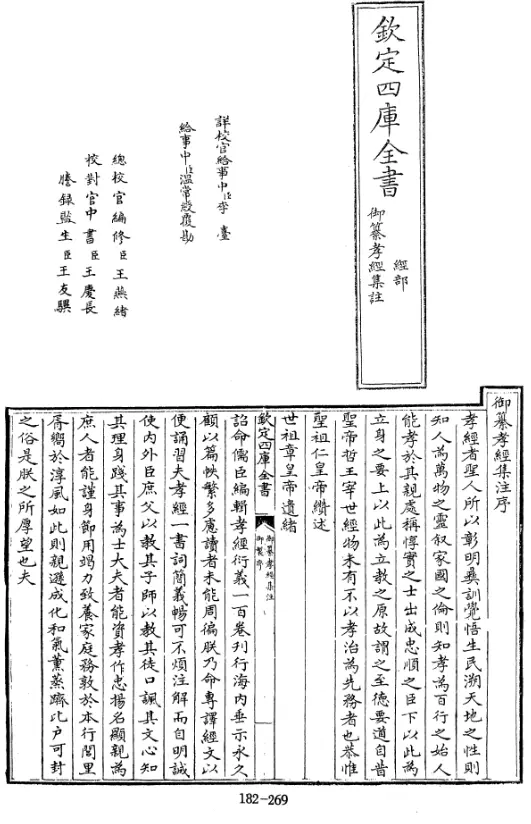 欽定四庫全書
經部
御纂孝經集註
詳校官給事中臣李臺
給事中臣溫常綬覆勘
總校官編修臣王燕緒
校對官中書臣王慶長
謄錄監生臣王友騏
御纂孝經集注序
孝經者聖人所以彰明彝訓覺悟生民溯天地之性則
知人為萬物之靈叙家國之倫則知孝為百行之始人
能孝於其親處稱惇實之士出成忠順之臣下以此為
立身之要上以此為立教之原故謂之至德要道自昔
聖帝哲王宰世經物未有不以孝治為先務者也恭惟
聖祖仁皇帝纘述
世祖章皇帝遺緒
欽定四庫全書
御纂孝經集注
御製序
詔命儒臣編輯孝經衍義一百卷刋行海内垂示永久
顧以篇帙繁多慮讀者未能周徧朕乃命專譯經文以
便誦習夫孝經一書詞簡義暢可不煩注解而自明誠
使内外臣庶父以教其子師以教其徒口諷其文心知
其理身踐其事為士大夫者能資孝作忠揚名顯親為
庶人者能謹身節用竭力致養家庭務敦於本行閭里
胥嚮於淳風如此則親遜成化和氣薰蒸躋比户可封
之俗是朕之所厚望也夫
182-269